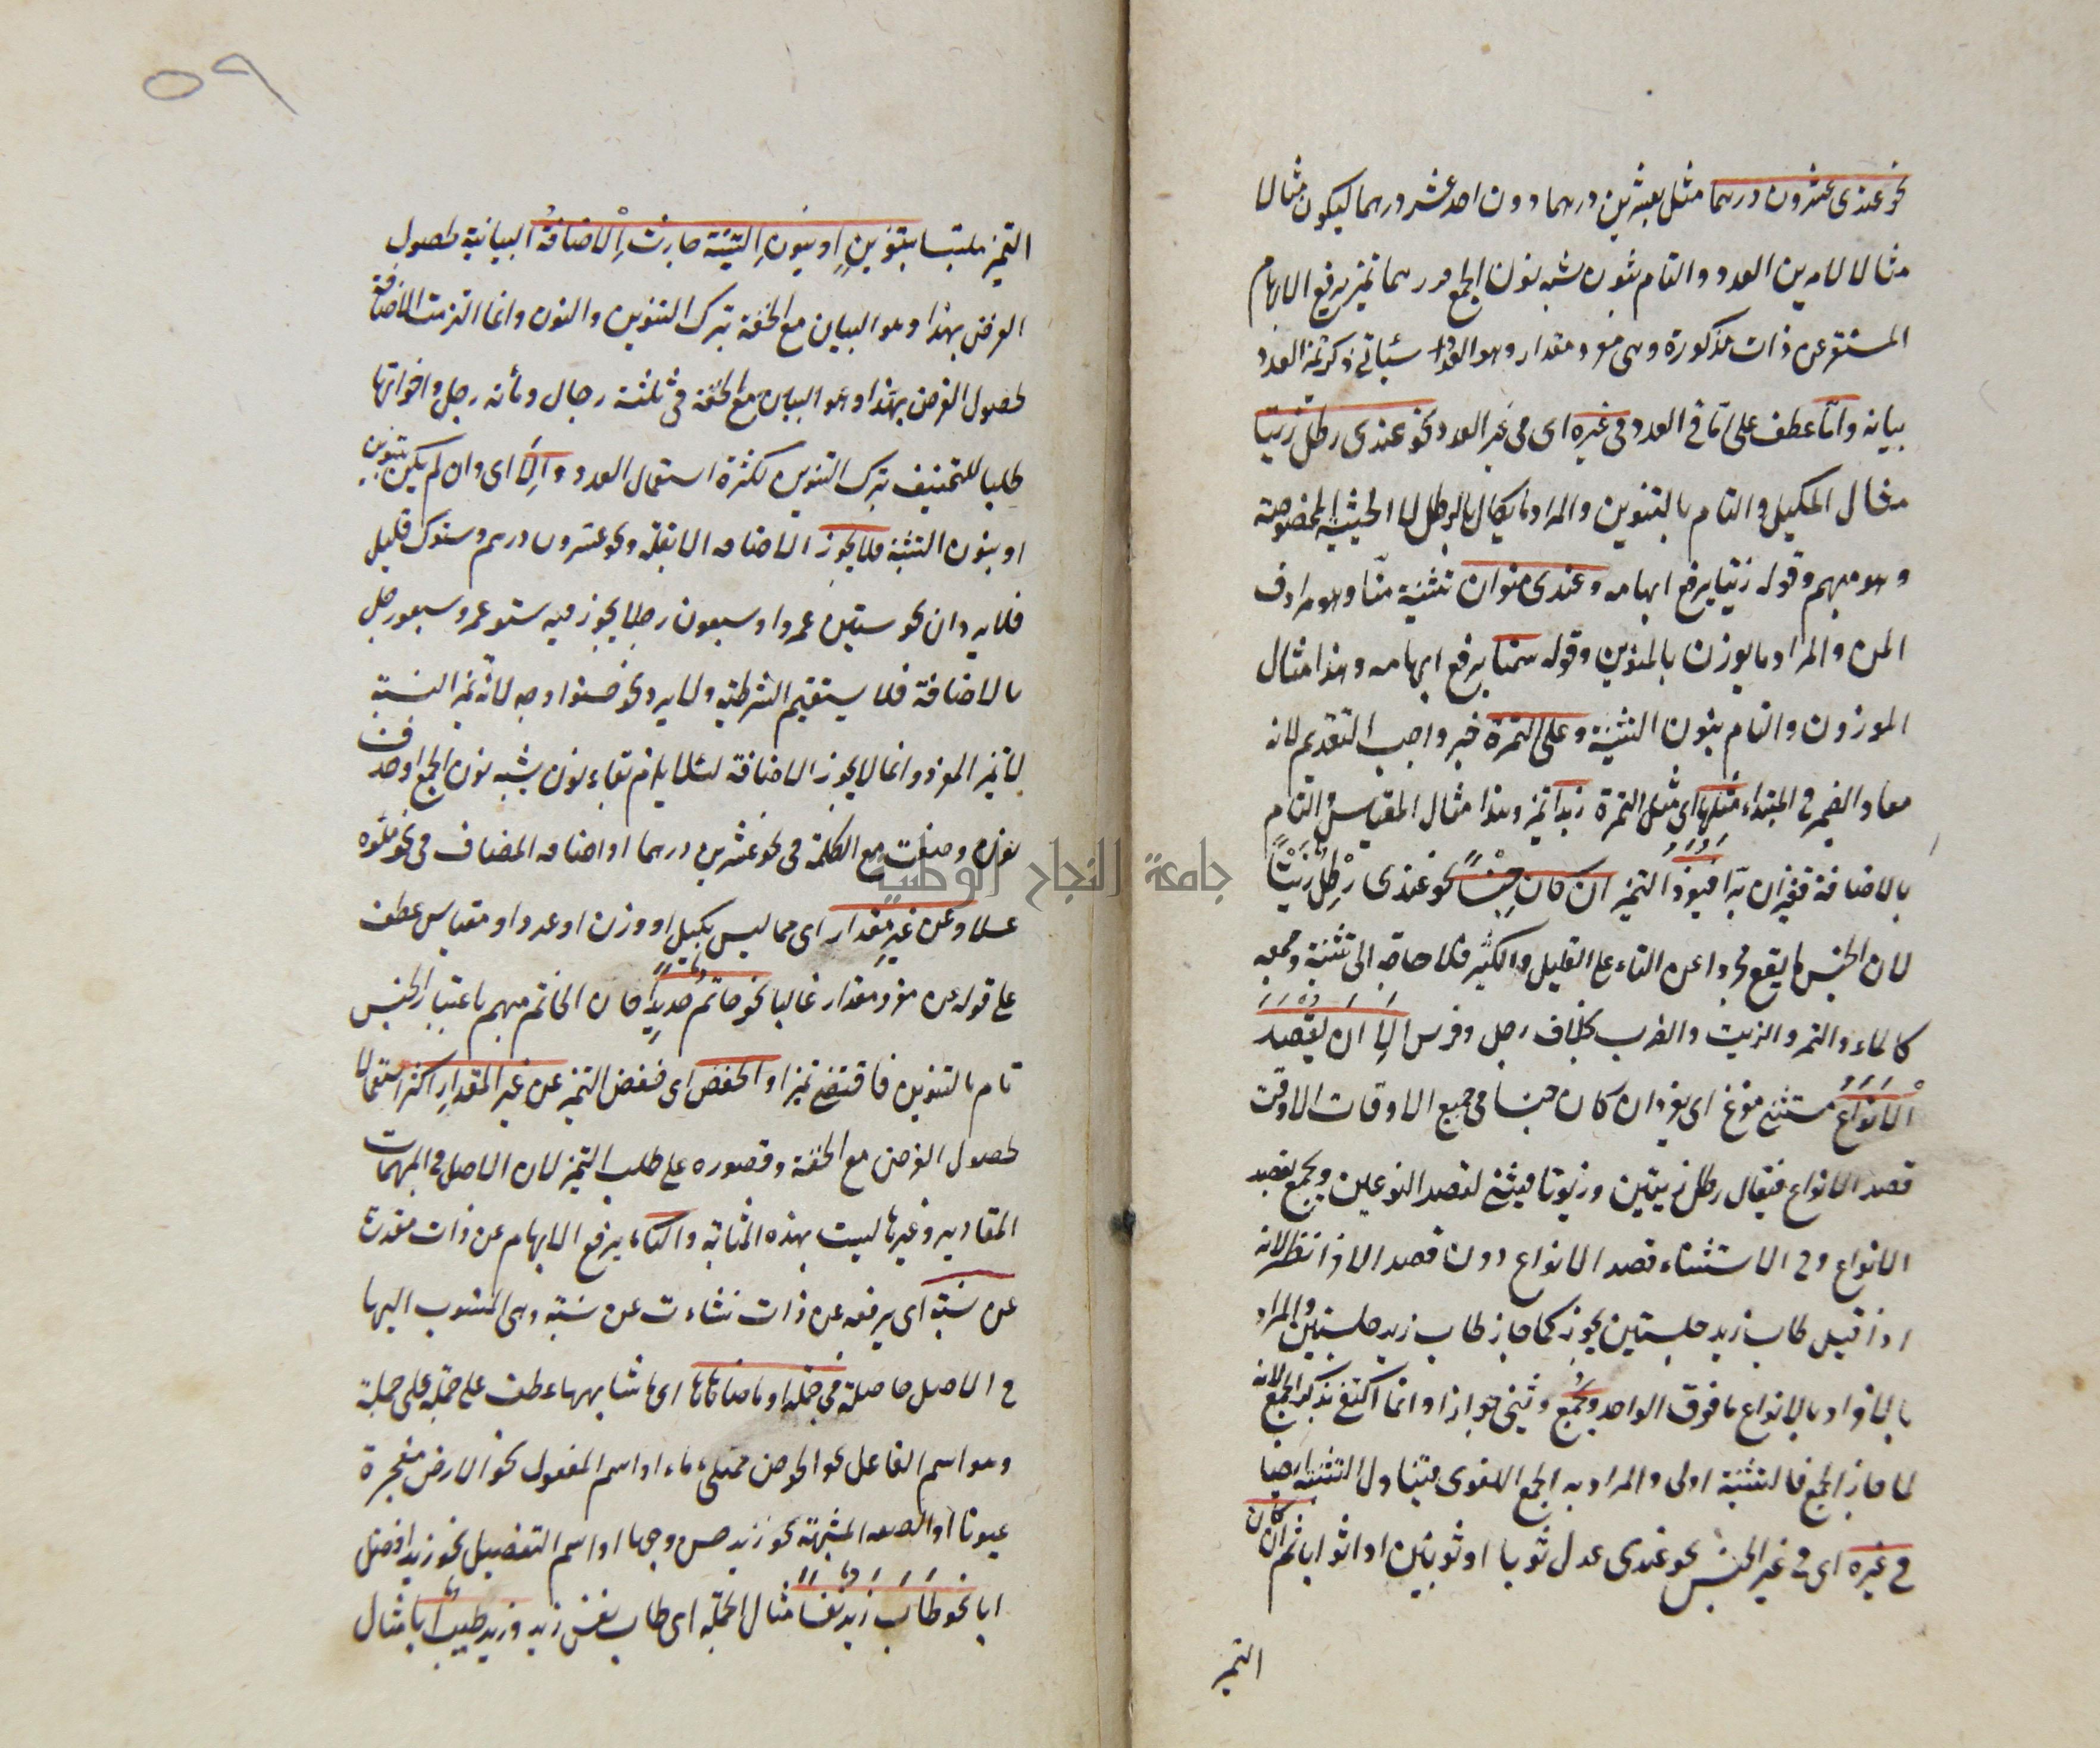 نحو عندى عشرون درهما مثل بعشرين درهما دون احد عشر درهما ليكون مثالا
مثالا لامرين العدد والتام بنون شبه نون الجمع ودرهما تميز يرفع الابهام
المستقر عن ذات مذكورة وهى مفرد مقدار وهو العدد سيأتى ذكر تمة العدد
بيانه واما عطف على اما فى العدد فى غيره اى فى غير العدد نحو عندى رطل زيتا
مثال المكيل والتام بالتنوين والمراد ما يكال بالرطل لا الحيثية المخصوصة
وهو مبهم وقوله زيتا يرفع ابهامه وعندى منوان تثنية منا وهو مرادف
المن والمراد ما يوزن بالمنوين وقوله سمنا يرفع ابهامه وهذا مثال
الموزون والتام بنون التثنية وعلى التمرة خبر واجب التقديم لانه
معاد الضمير فى المبتداء مثلها اى مثل التمرة زبدا تميز وهذا مثال المقياس والتام
بالاضافة قفيزان برا فيفرد التميز ان كان جنسا نحو عندى رطل زيتا
لان الجنس ما يقع مجردا عن التاء على القليل والكثير فلا حاجة الى تثنية وجمعه
كالماء والتمر والزيت والضرب بخلاف رجل وفرس الا ان يقصد
الانواع مستثنى مفرغ اى يفرد ان كان جنسا فى جميع الاوقات الا وقت
قصد الانواع فيقال رطل زيتين وزيوتا فيثنى لقصد النوعين ويجمع لقصد
الانواع وفى الاستثناء قصد الانواع دون قصد الافراد نظر لانه
اذا قيل طاب زيد جلستين يجوز كما جاز طاب زيد جلستين والمراد
بالافراد بالانواع ما فوق الواحد ويجمع وثنى جوازا وانما اكتفى بذكر الجمع لانه
لما جاز الجمع فالتثنية اولى والمراد به الجمع اللغوى فيتناول التثنية ايضا
فى غيره اى فى غير الجنس نحو عندى عدل ثوبا او ثوبين او اثوابا ثم ان كان
التميز
٥٩
التميز ملتبسا بتنوين او بنون التثنية جازت الاضافة البيانية لحصول
الغرض بهذا وهو البيان مع الخفة بترك التنوين والنون وانما التزمت الاضافة
لحصول الغرض بهذا وهو البيان مع الخفة فى ثلثة رجال ومأنه رجل واخواتها
طلبا للتخفيف بترك التنوين لكثرة استعمال العدد والا اى وان لم يكن بتنوين
او بنون التثنية فلا يجوز الاضافه الا بقلة ونحو عشرون درهم وستوك قليل
فلا يرد ان نحو ستين عمروا وسبعون رجلا يجوز فيه ستو عمرو وسبعو رجل
بالاضافة فلا يستقيم الشرطية ولا يرد نحو حسنوا وجه لانه تميز النسبة
لا تميز المفرد وانما لا يجوز الاضافة لئلا يلزم بقاء نون يشبه نون الجمع او حذف
نون وضعت مع الكلمة فى نحو عشرين درهما او اضافه المضاف فى نحو ملؤه
عسلا وعن غير مقدار اى مما ليس بكيل او وزن او عدد او مقياس عطف
على قوله عن مفرد مقدار غالبا نحو خاتم حديدا فان الخاتم مبهم باعتبار الجنس
تام بالتنوين فاقتضى تميزا والخفض اى خفض التميز عن غير المقدار اكثر استعمالا
لحصول الغرض مع الخفة وقصوره على طلب التميز لان الاصل فى المبهمات
المقادير وغيرها ليست بهذه المثابة والثانى يرفع الابهام عن ذات مقدرة
عن نسبة اى يرفعه عن ذات نشاءت عن نسبة وهى المنسوب اليها
فى الاصل حاصلة فى جملة او ما ضاهاها اى ما شابهها عطف على جملة على جملة
وهو اسم الفاعل نحو الحوض ممتلىء ماء او اسم المفعول نحو الارض مفجرة
عيونا او الصفه المشبهة نحو زيد حسن وجها او اسم التفضيل نحو زيد افضل
ابا نحو طاب زيد نفسا مثال الجملة اى طاب نفس زيد وزيد طيب ابا مثال
جامعة النجاح الوطنية